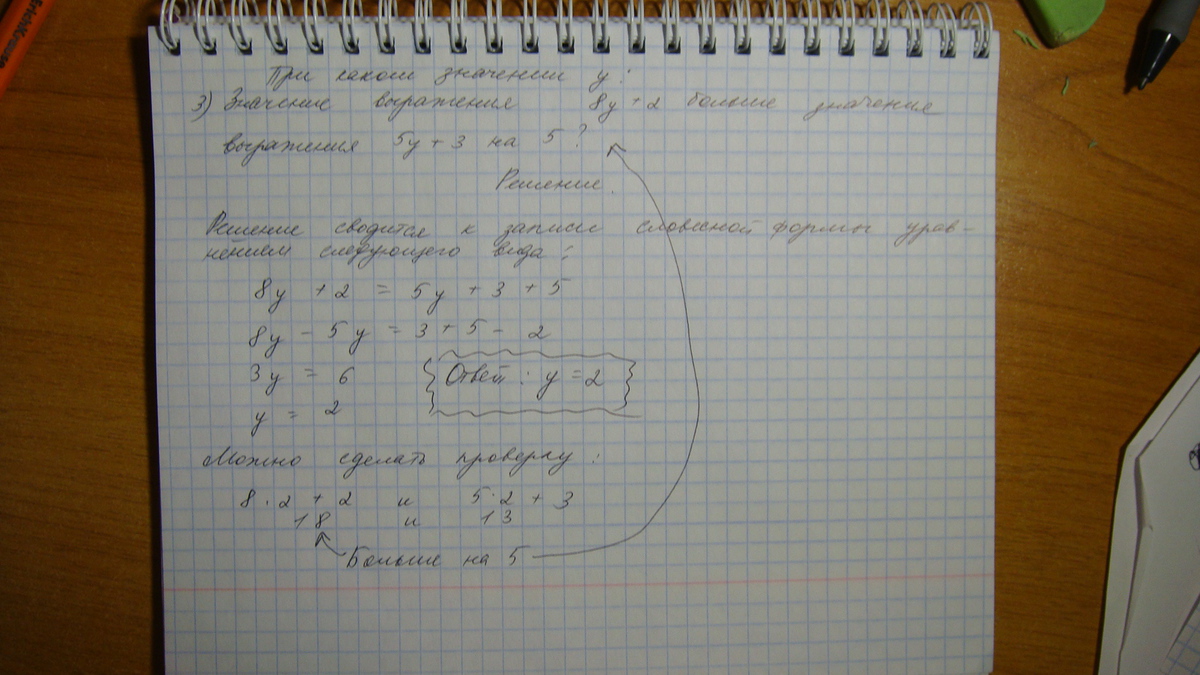 При каком значении y:
3) Значение выражения 8y + 2 больше значения
выражения 5y + 3 на 5 ?
Решение.
Решение сводится к записи словесной формы урав-
нением следующего вида:
8y + 2 = 5y + 3 + 5
8y - 5y = 3 + 5 - 2
3y = 6
Ответ: y = 2
y = 2
Можно сделать проверку:
8 · 2 + 2 и 5 · 2 + 3
18 и 13
Больше на 5